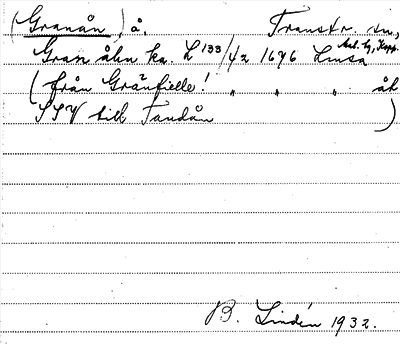 (Granån) å. Transtr. sn,
Gran åhn ka. L 133/42 1696 Limsa
(från Gränfielle! " " " åk
SSV till Tandån )
B. Lindén 1932.